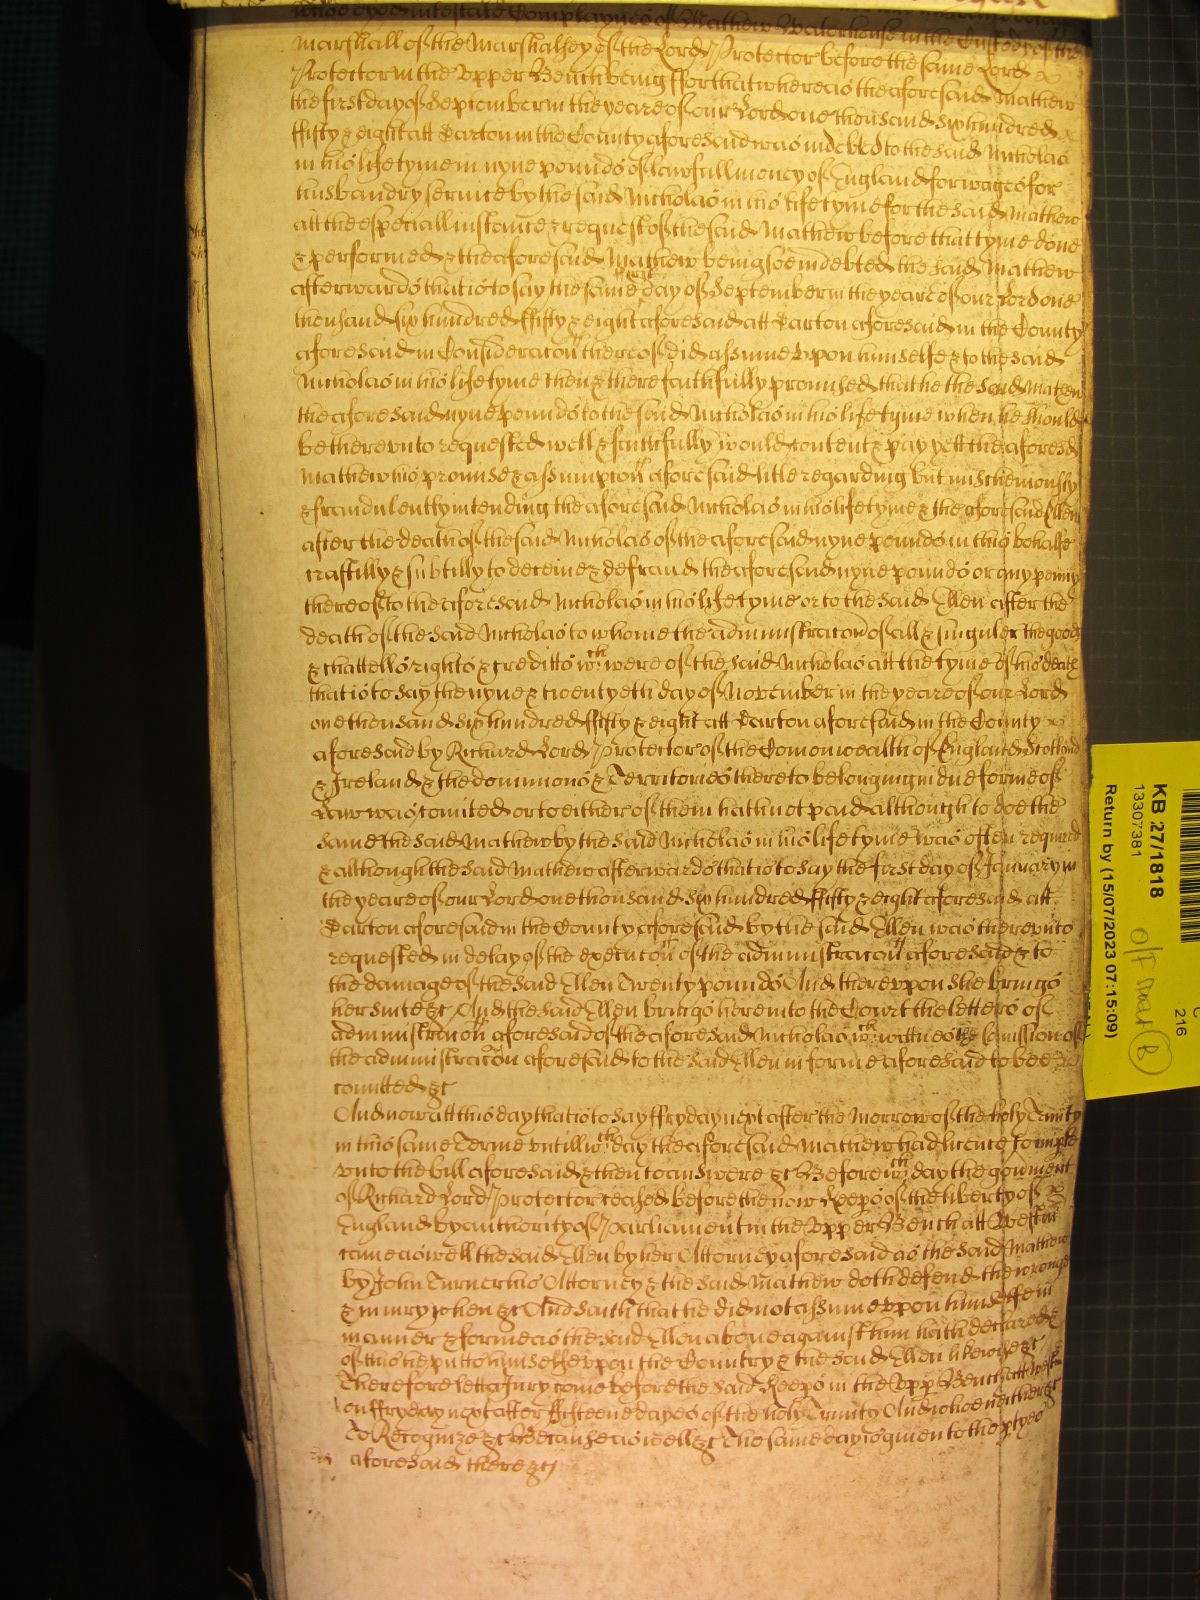 who dyed intestate Complaynes of Mathew Waterhouse in the Custody of the
Marshall of the Marshalsey of the Lord Protector before the same Lord
Protector in the Vpper Bench being ffor that whereas the aforesaid Mathew
the first day of September in the yeare of our Lord one thousand six hundred
ffifty & eight att Barton in the County aforesaid was indebted to the said Nicholas
in his life tyme in nyne pounds of lawfull money of England for wages for
husbandry service by the said Nicholas in his life tyme for the said Mathew
att the especiall instance & request of the said Mathew before that tyme done
& performed & the aforesaid Mathew being soe indebted the said Mathew
afterwards that is to say the same first day of September in the yeare of our Lord one
thousand six hundred ffifty & eight aforesaid att Barton aforesaid in the County
aforesaid in Consideracon thereof did assume vpon himselfe & to the said
Nicholas in his life tyme then & there faithfully promised that he the said Mathew
the aforesaid nyne pounds to the said Nicholas in his life tyme when he should
be therevnto requested well & faithfully would content & pay yett the aforesd
Mathew his promise & assumpcon aforesaid litle regarding but mischeivously
& fraudulently intending the aforesaid Nicholas in his life tyme & the aforesaid Ellen
after the death of the said Nicholas of the aforesaid nyne pounds in this behalfe
craftilly & subtilly to deceive & defraud the aforesaid nyne pounds or any penny
thereof to the aforesaid Nicholas in his life tyme or to the said Ellen after the
death of the said Nicholas to whome the administracon of all & singuler the goods
& chattells rights & creditts wch were of the said Nicholas att the tyme of his death
that is to say the nyne & twentyeth day of November in the yeare of our Lord
one thousand six hundred ffifty & eight att Barton aforesaid in the County
aforesaid by Richard Lord Protector of the Comonwealth of England Scotland
& Ireland & the dominions & Territories thereto belonging in due forme of
Law was comited or to either of them hath not paid although to doe the
same the said Mathew by the said Nicholas in his life tyme was often required
& although the said Mathew afterwards that is to say the first day of January in
the yeare of our Lord one thousand six hundred ffifty & eight aforesaid att
Barton aforesaid in the County aforesaid by the said Ellen was therevnto
requested in delay of the execucon of the administracon aforesaid & to
the damage of the said Ellen Twenty pounds And therevpon she brings
her suite &c And the said Ellen brings here into the Court the letters of
administracon aforesaid of the aforesaid Nicholas wch wittnes the Comission of
the administracon aforesaid to the said Ellen in forme aforesaid to bee
comitted &c
And now att this day that is to say ffryday next after the Morrow of the holy Trinity
in this same Terme vntill wch day the aforesaid Mathew had licence to imple
vnto the bill aforesaid & then to answere &c Before wch day the govment
of Richard Lord Protector ceased before the now Keeps of the liberty of
England by authority of Parliament in the Vpper Bench att Westm
came as well the said Ellen by her Attorney aforesaid as the said Mathew
by John Turner his Attorney & the said Mathew doth defend the wronge
& iniury when &c And saith that he did not assume vpon himselfe in
manner & forme as the said Ellen above against him hath declared &
of this he putts himselfe vpon the Country & the said Ellen likewise &c
Therefore lett a Jury come before the said Keeps in the Vpp Bench att Westm
on ffryday next after ffifteene dayes of the holy Trinity And who neither &c
To Recognize &c Because as well &c The same day is given to the ptyes
aforesaid there &c
KB 27/1818
13307381
Return by (15/07/2023 07:15:09)
216
B